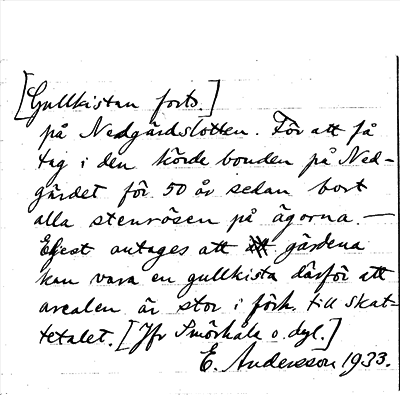 [Gullkistan forts.]
på Nedgärdslotten. För att få
tag i den körde bonden på Ned-
gärdet för 50 år sedan bort
alla stenrösen på ägorna. —
Eljest antages att gärdena
kan vara en gullkista därför att
arealen är stor i förh. till skat-
tetalet. [Jfr Smörhåla o. dyl.]
E. Andersson 1933.